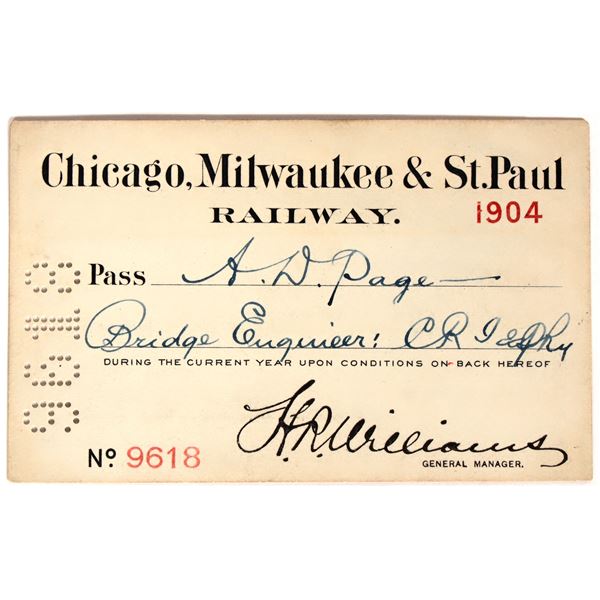 Chicago, Milwaukee & St. Paul
RAILWAY. 1904
Pass A. D. Page
Bridge Engineer: C R I & P Ry
DURING THE CURRENT YEAR UPON CONDITIONS ON BACK HEREOF
H.R. Williams
GENERAL MANAGER.
No. 9618
9618